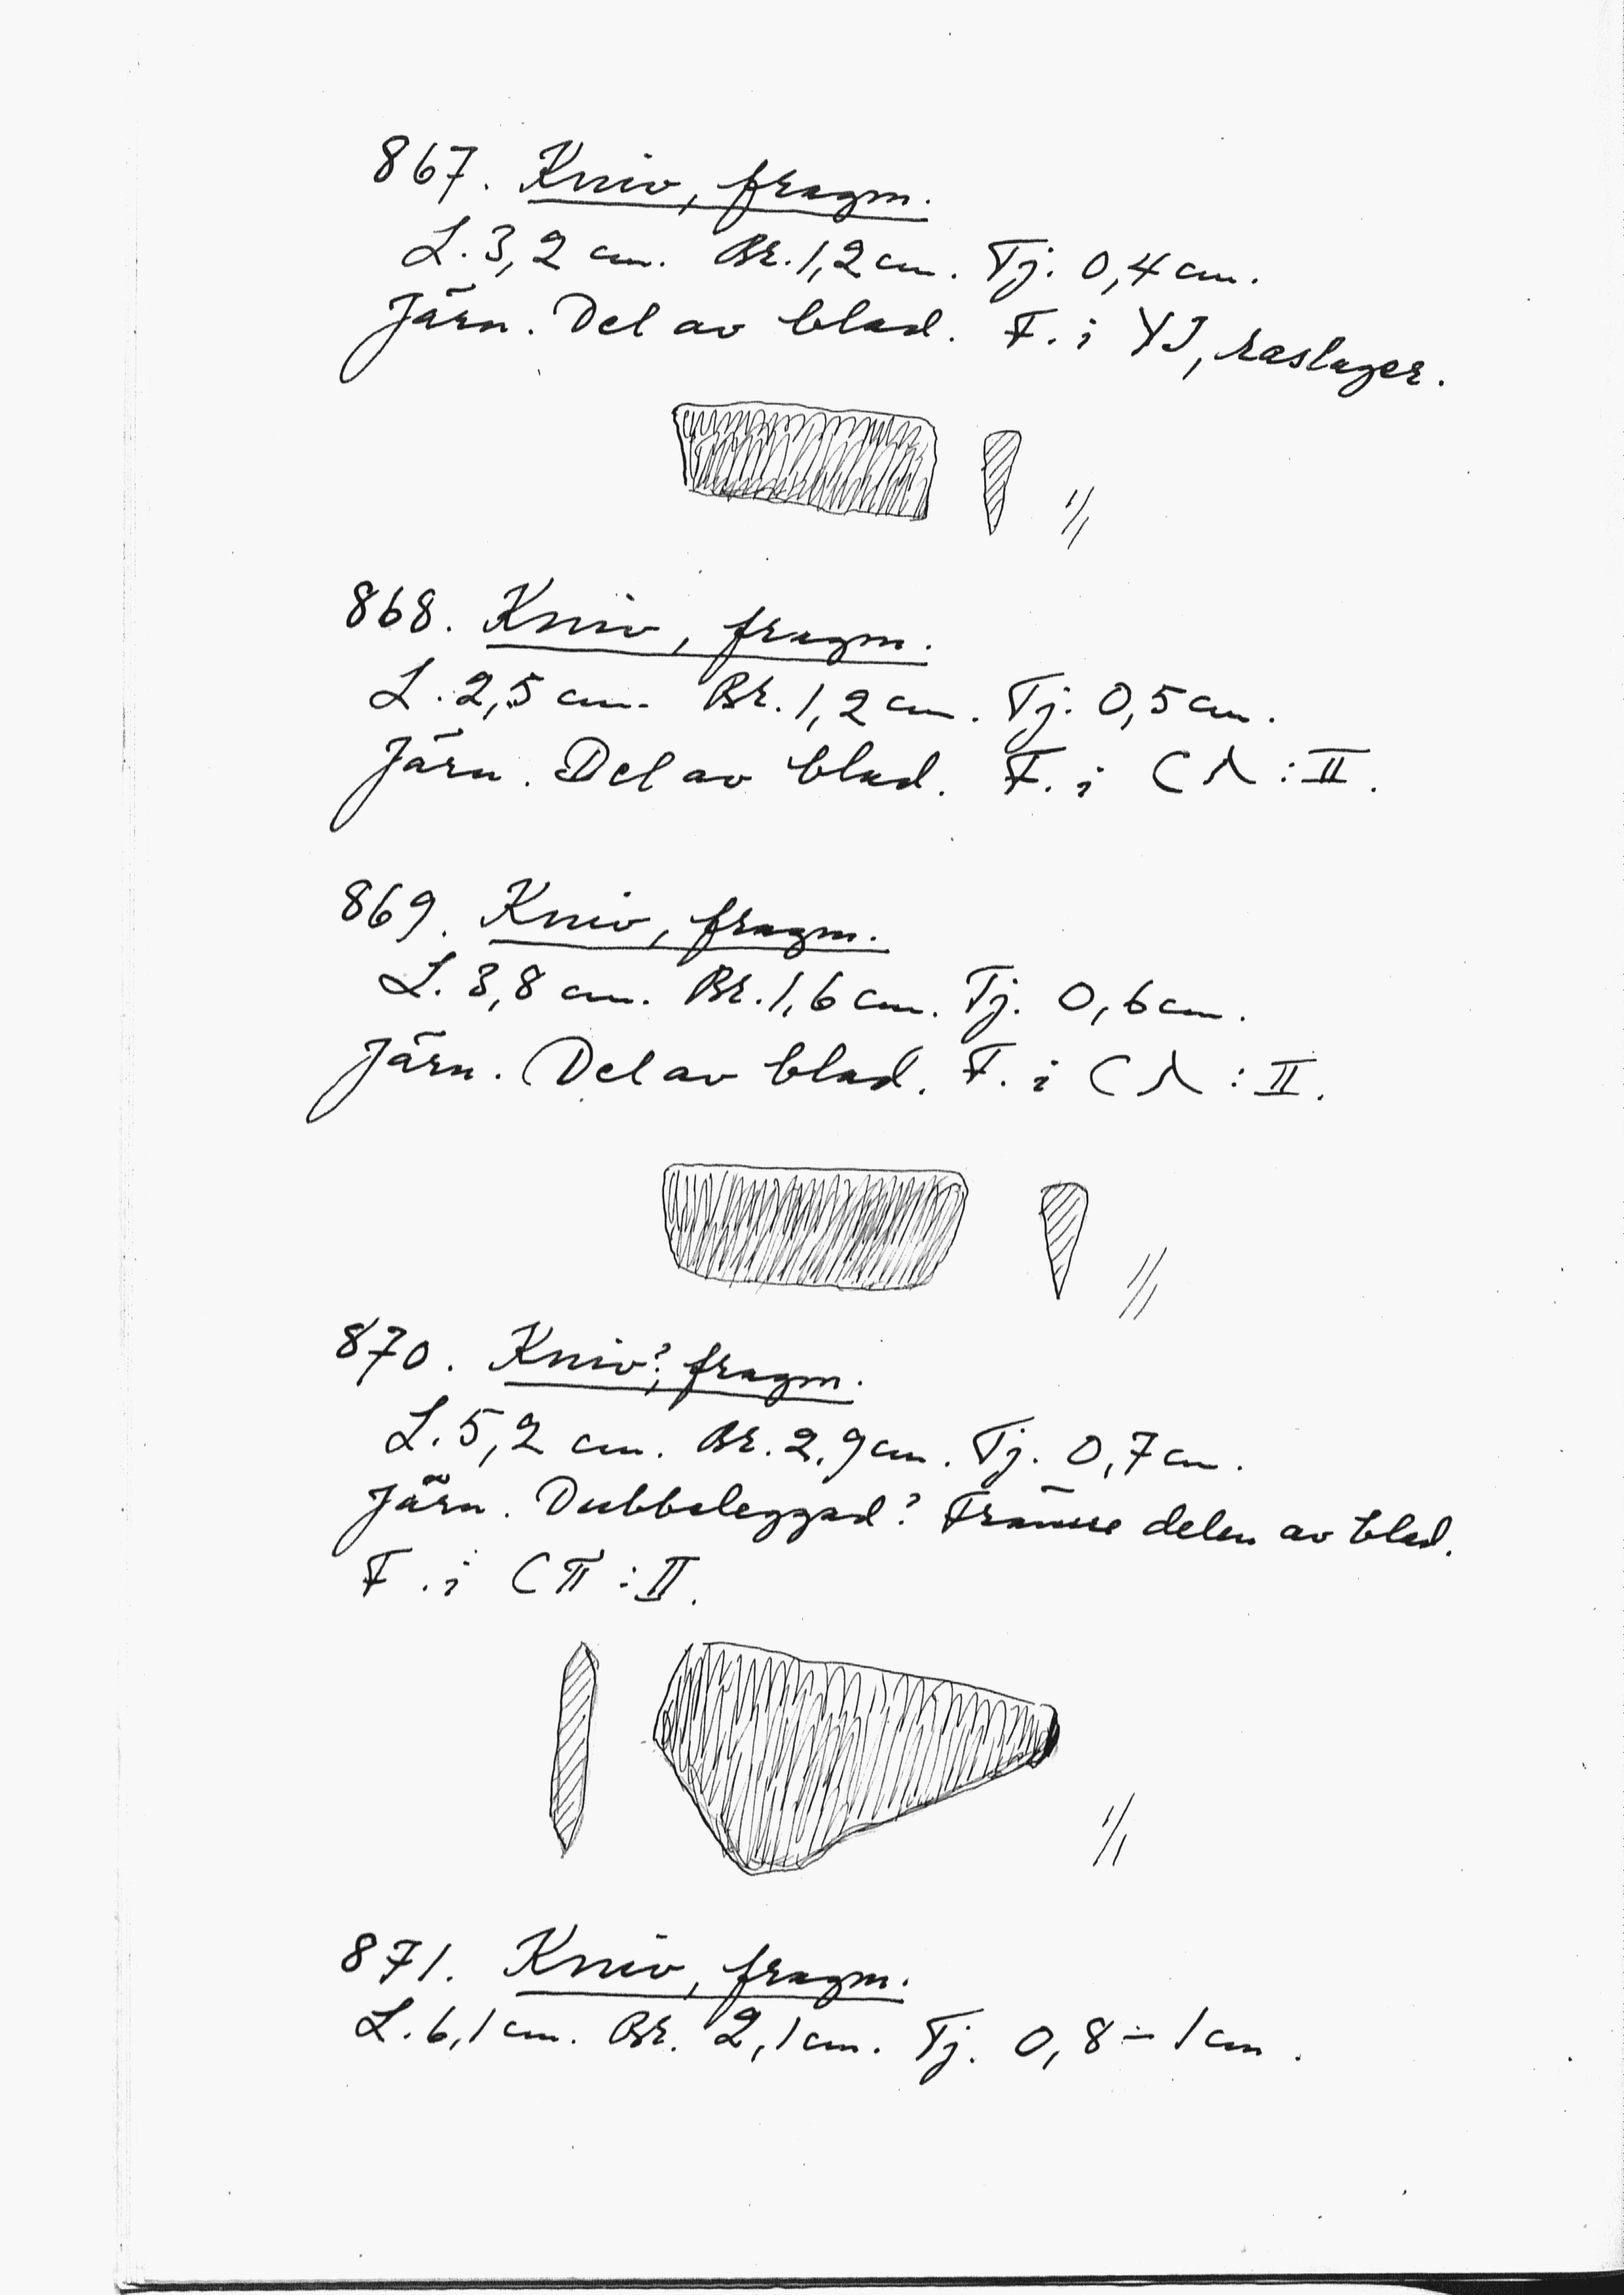 867. Kniv, fragm.
L. 3,2 cm. Br. 1,2 cm. Tj. 0,4 cm.
Järn. Del av blad. F. i YJ, raslager.
1/1
868. Kniv, fragm.
L. 2,5 cm. Br. 1,2 cm. Tj. 0,5 cm.
Järn. Del av blad. F. i Cλ : II.
869. Kniv, fragm.
L. 3,8 cm. Br. 1,6 cm. Tj. 0,6 cm.
Järn. Del av blad. F. i Cλ : II.
1/1
870. Kniv?, fragm.
L. 5,2 cm. Br. 2,9 cm. Tj. 0,7 cm.
Järn. Dubbeleggad? Främre delen av blad.
F. i Cπ : II.
1/1
871. Kniv, fragm.
L. 6,1 cm. Br. 2,1 cm. Tj. 0,8 – 1 cm.